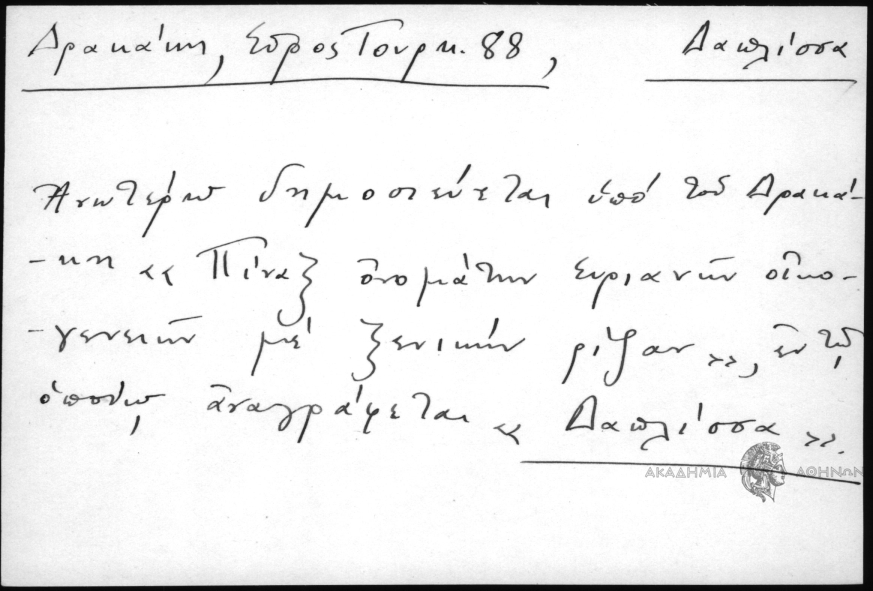 Δρακάκη, Σύρος Τουρκ. 88, Δαπλίσσα
Ἀνωτέρω δημοσιεύεται ὑπό τοῦ Δρακά-
-κη « Πίναξ ὀνομάτων Συριανῶν οἰκο-
-γενειῶν μέ ξενικήν ρίζαν », ἐν τῷ
ὁποίῳ ἀναγράφεται « Δαπλίσσα ».
ΑΚΑΔΗΜΙΑ ΑΘΗΝΩΝ